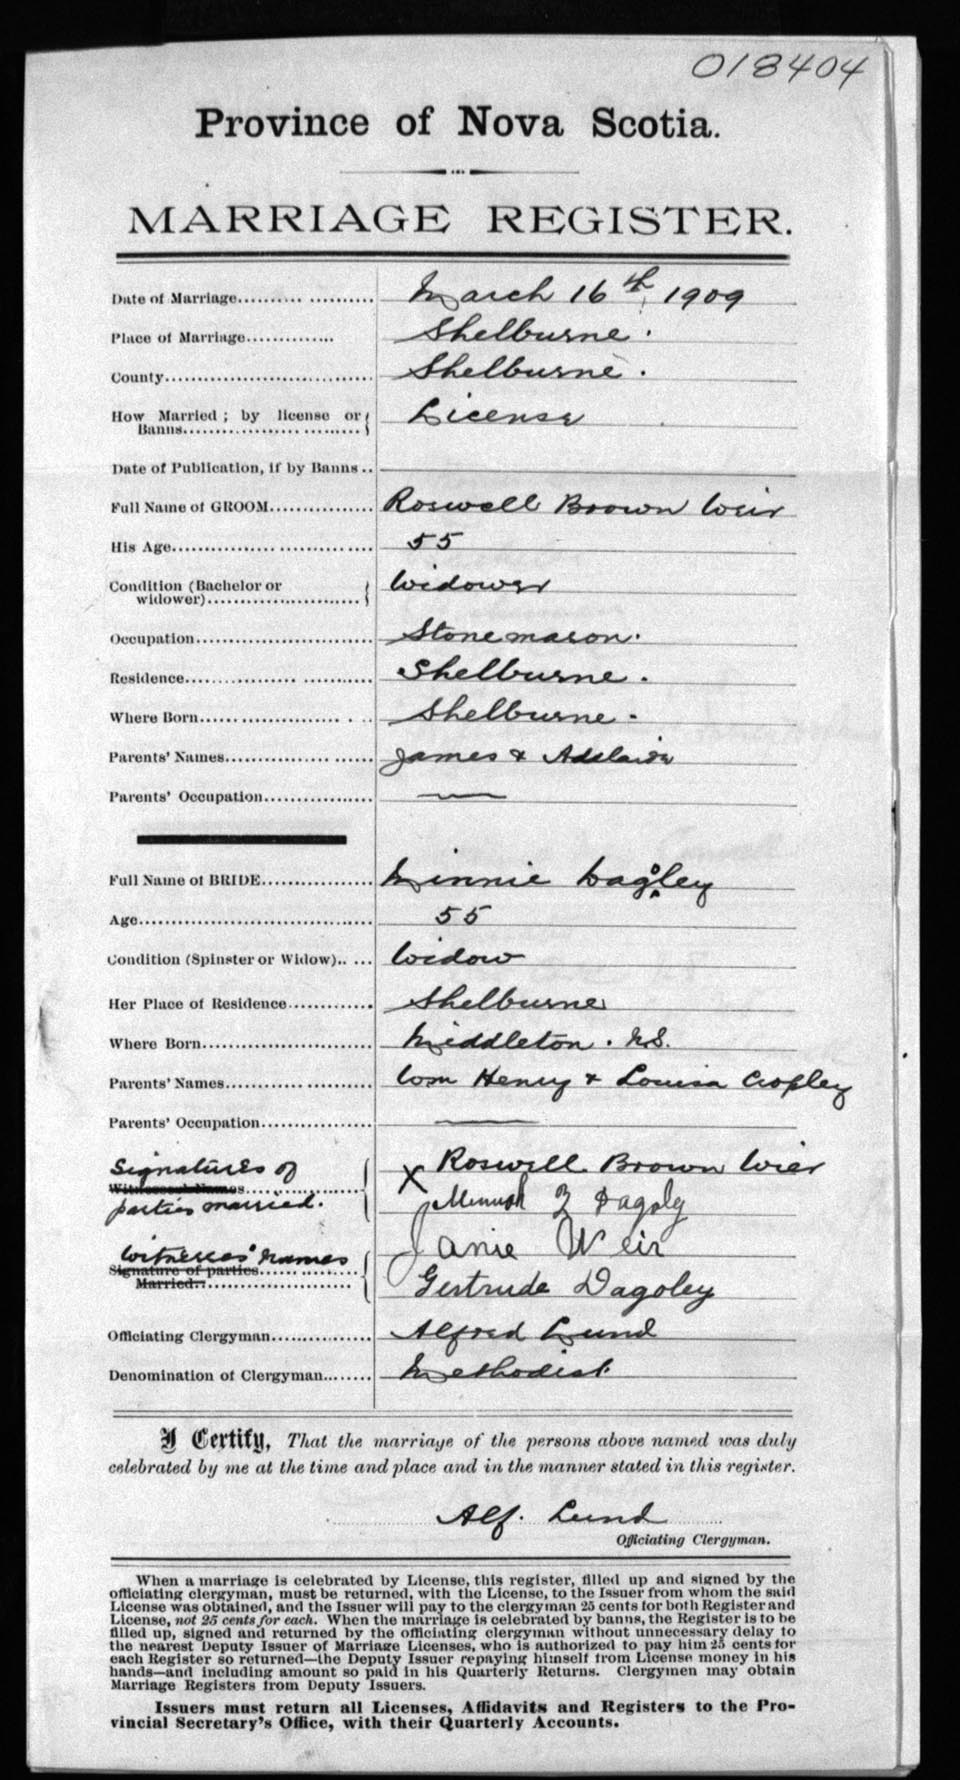 018404
Province of Nova Scotia.
MARRIAGE REGISTER.
Date of Marriage.......... ........... March 16th, 1909
Place of Marriage.............. Shelburne.
County................................ Shelburne.
How Married; by license or License
Banns...................................
Date of Publication, if by Banns ..
Full Name of GROOM................ Roswell Brown Weir
His Age................................ 55
Condition (Bachelor or Widower
widower)............................
Occupation............................ Stone mason.
Residence............................. Shelburne.
Where Born..................... . .. Shelburne.
Parents' Names....................... James & Adelaide
Parents' Occupation.................
Full Name of BRIDE................. Minnie Dagoley
Age.................................... 55
Condition (Spinster or Widow).. ... Widow
Her Place of Residence............. Shelburne
Where Born.......................... Middleton. N.S.
Parents' Names....................... Wm Henry & Louisa Cropley
Parents' Occupation.................
Signatures of Roswell Brown Wier
Witnesses' Names.................. X
parties married. Dagoly
Witnesses' Names Janie Weir
Signature of parties..................
Married:.......................... Gertrude Dagoley
Officiating Clergyman............... Alfred Lund
Denomination of Clergyman........ Methodist
I Certify, That the marriage of the persons above named was duly
celebrated by me at the time and place and in the manner stated in this register.
Alf. Lund
Officiating Clergyman.
When a marriage is celebrated by License, this register, filled up and signed by the
officiating clergyman, must be returned, with the License, to the Issuer from whom the said
License was obtained, and the Issuer will pay to the clergyman 25 cents for both Register and
License, not 25 cents for each. When the marriage is celebrated by banns, the Register is to be
filled up, signed and returned by the officiating clergyman without unnecessary delay to
the nearest Deputy Issuer of Marriage Licenses, who is authorized to pay him 25 cents for
each Register so returned—the Deputy Issuer repaying himself from License money in his
hands—and including amount so paid in his Quarterly Returns. Clergymen may obtain
Marriage Registers from Deputy Issuers.
Issuers must return all Licenses, Affidavits and Registers to the Pro-
vincial Secretary's Office, with their Quarterly Accounts.